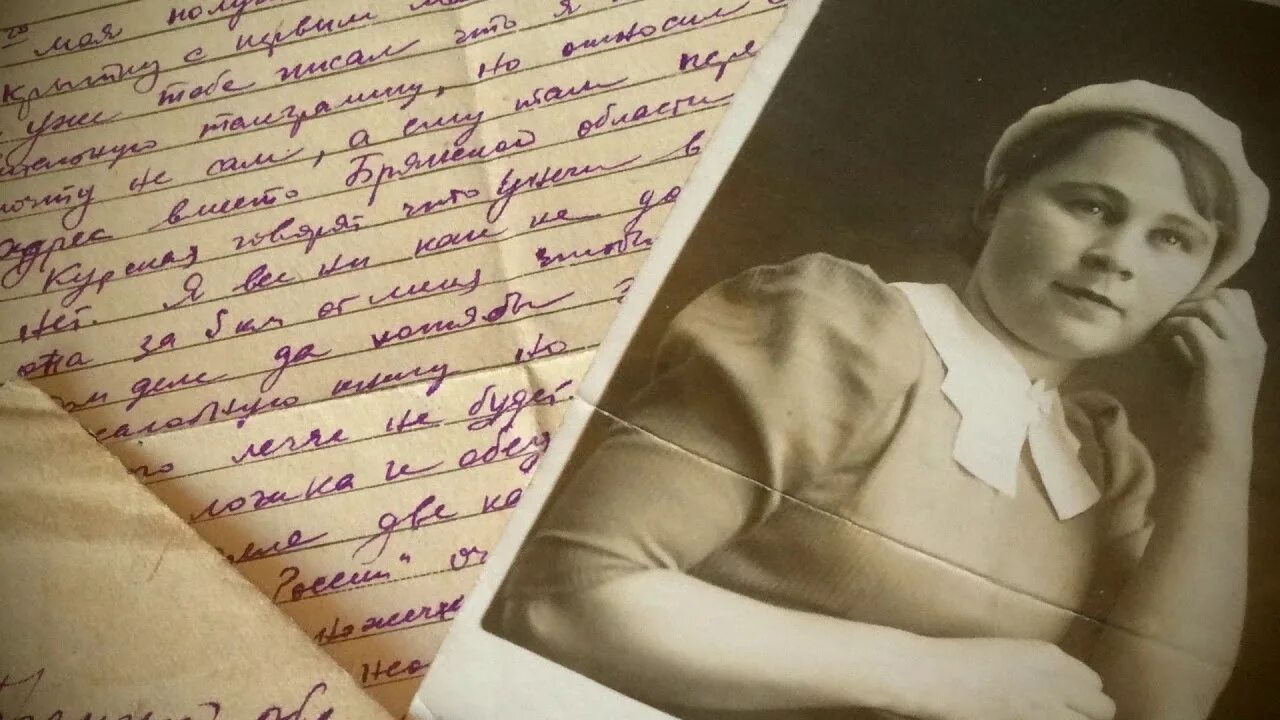 мая полу
крытку с первым ма
уже тебе писал что я
тельную таиграмму, но относил
почту не сам, а ему там пере
адрес вместо Брянской области
Курская говорят что Унечи в
нет. Я все ни как не до
она за 5 км от меня
ом деле да хотябы
но
го лечяс не будет.
ложка и обед
две ка
России" оч
ножечк
обл